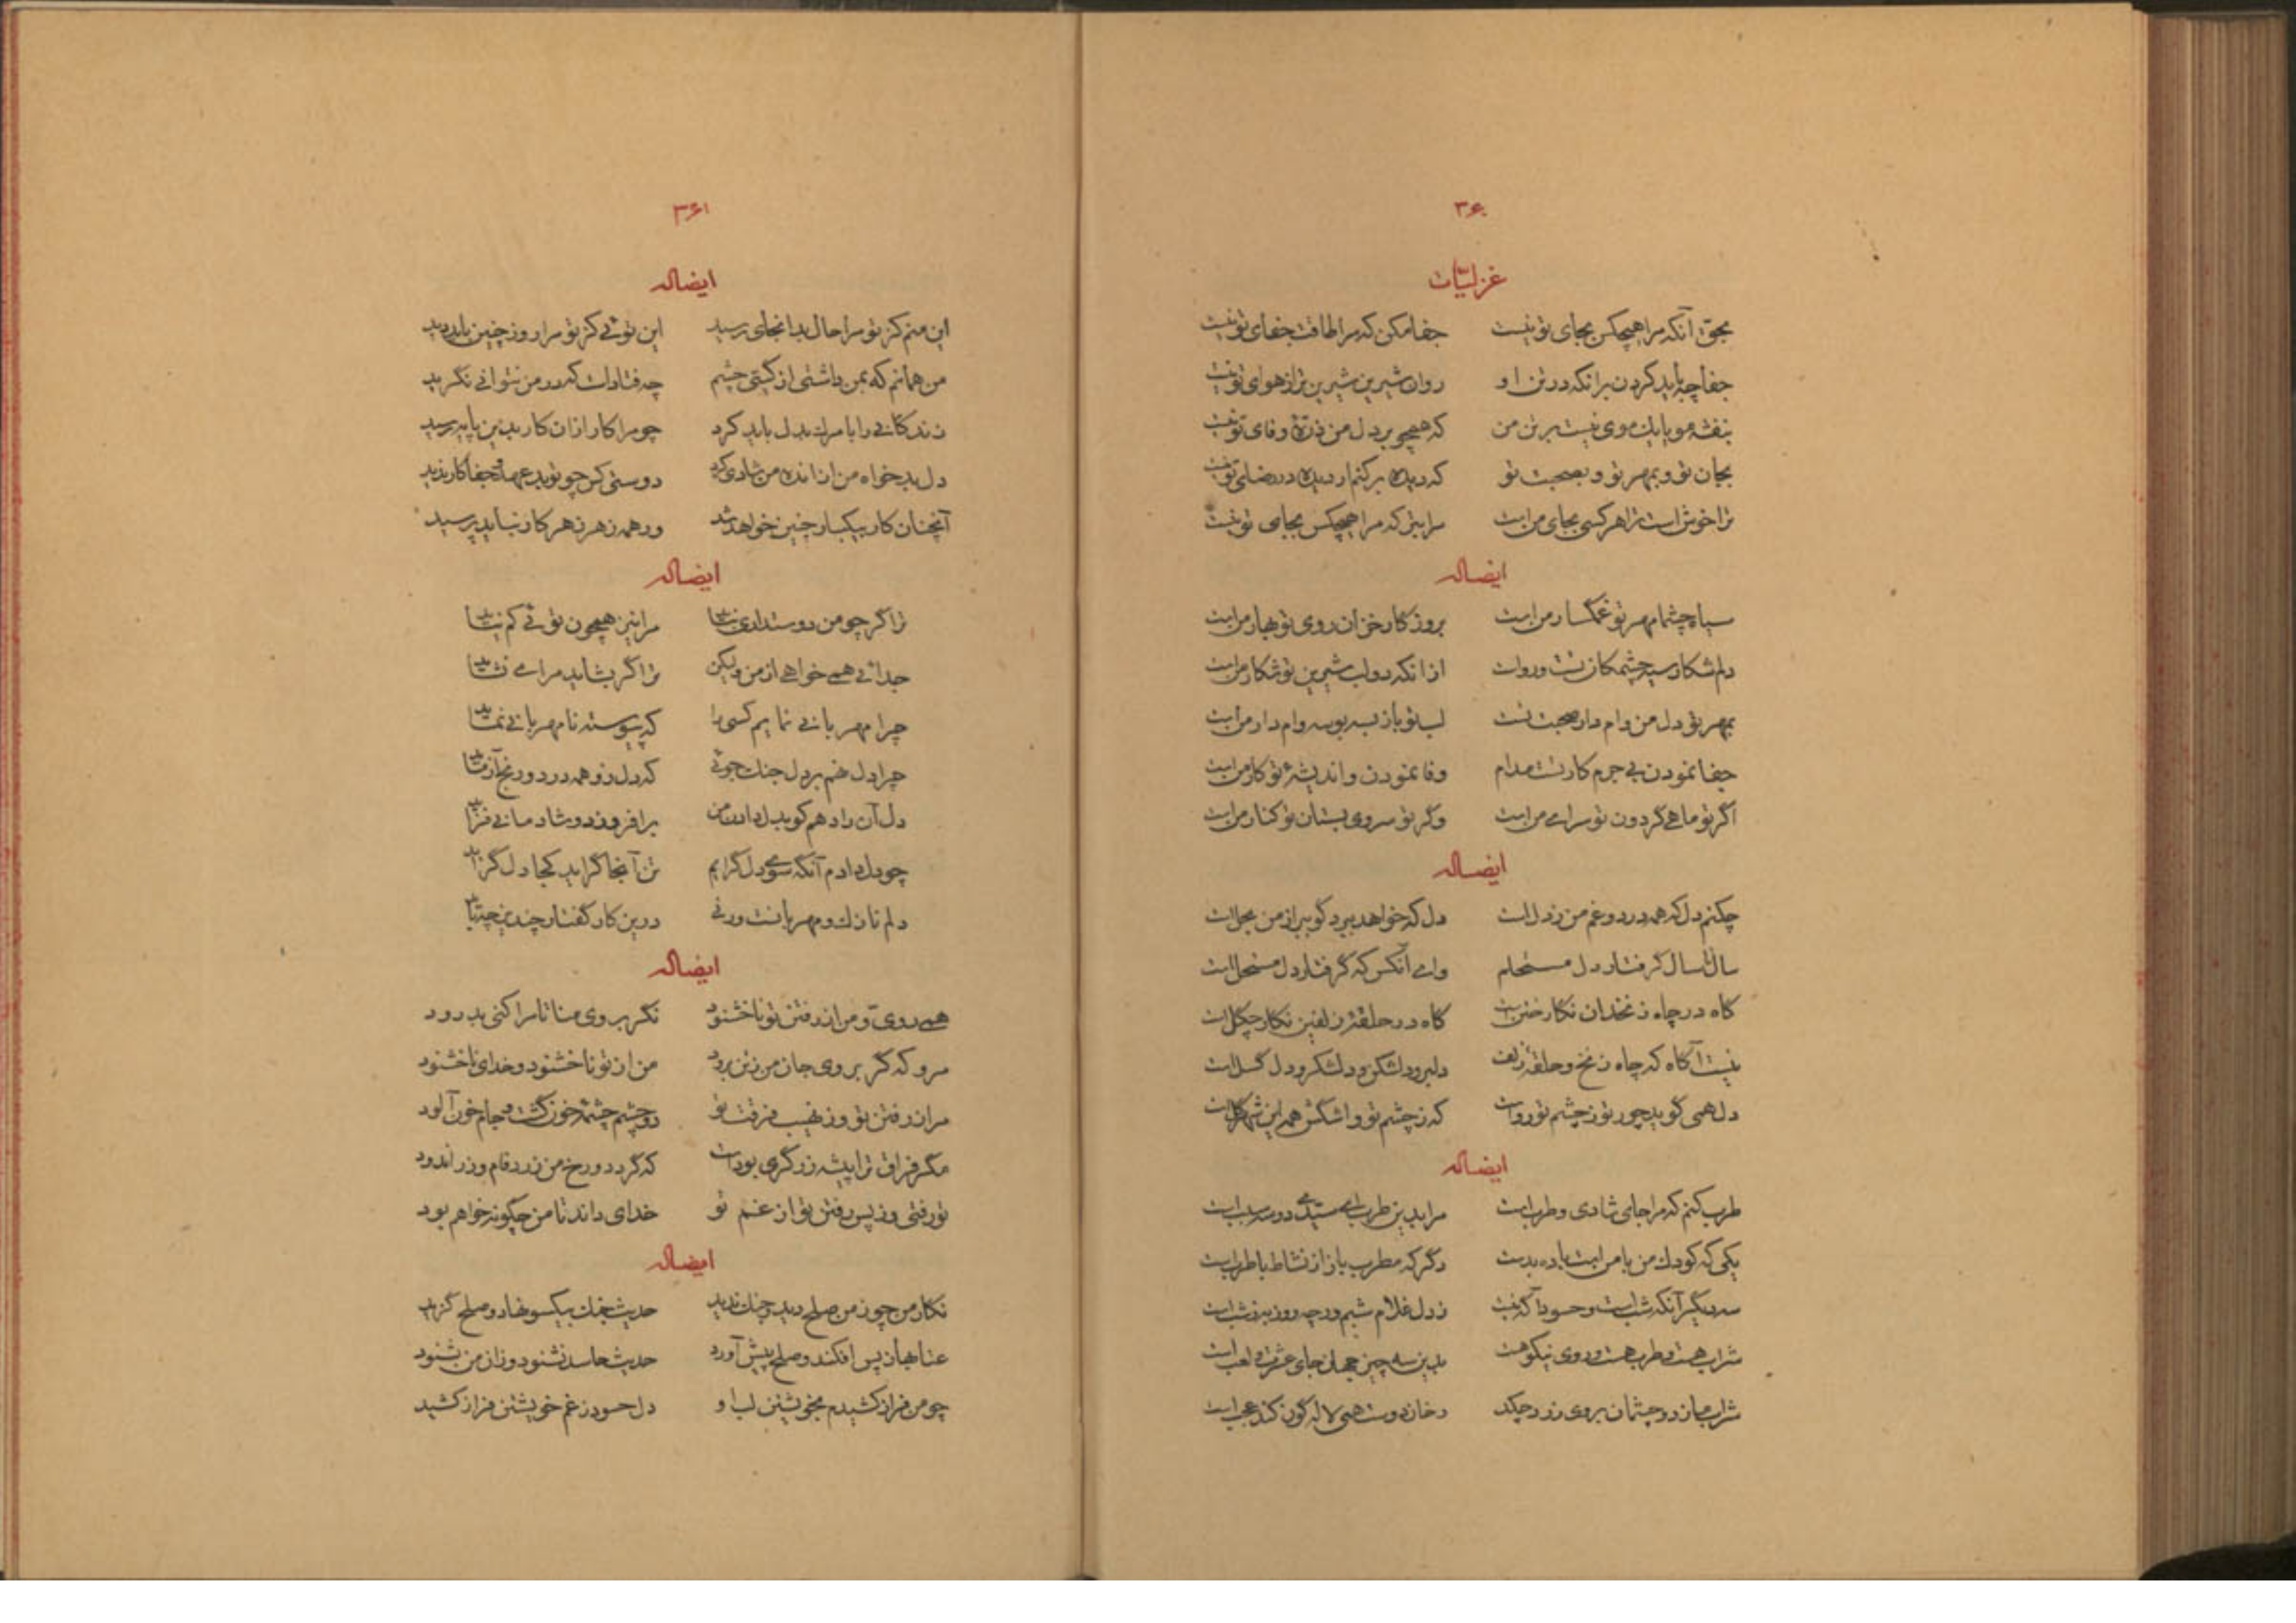 ۳۶۰
غزلیات
بحق آنکه مرا هیچکس بجای تو نیست جفا مکن که مرا طاقت جفای تو نیست
جفا چه باید کردن برانکه در تن او روان شیرین شیرین تر از هوای تو نیست
بنفشه مویا یک موی نیست بر تن من که همچو بر دل من ذرّهٔ وفای تو نیست
بجان تو و بمهر تو و بصحبت تو که دیده برکنم ار دیده در رضای تو نیست
ترا خوش است ترا هر کسی بجای من است مرا بتر که مرا هیچکس بجای تو نیست
ایضاله
سیاه چشما مهر تو غمگسار من است بروزگار خزان روی تو بهار من است
دلم شکار سیه چشمکان تست و رواست ازانکه دو لب شیرین تو شکار من است
بمهر تو دل من وام دار صحبت تست لب تو باز بسه بوسه وام دار من است
جفا نمودن بی جرم کار تست مدام وفا نمودن و اندیشهٔ تو کار من است
اگر تو ماهی گردون تو سرای من است وگر تو سروی بستان تو کنار من است
ایضاله
چکنم دل که همه درد و غم من ز دل است دل که خواهد ببرد گو ببر از من بحل است
سال تا سال گرفتار دل مستحلم وای آنکس که گرفتار دل مستحل است
گاه در چاه زنخدان نگار ختن است گاه در حلقهٔ زلفین نگار چگل است
نیست آگاه که چاه زنخ و حلقهٔ زلف دلبر و دلشکن و دلشکر و دل گسل است
دل همی گوید چور تو ز چشم تو رواست که ز چشم تو و اشگش همه این شهر گل است
ایضاله
طرب کنم که مرا جای شادی و طرب است مرا بدین طرب ای سیدی دو سه سبب است
یکی که کودک من با من است باده بدست دگر که مطرب باز از نشاط با طرب است
سه دیگر آنکه شب است و حسود آگه نیست ز دل غلام شبم ور چه روز به ز شب است
شراب هست و طرب هست و روی نیکو هست بدین سه چیز جهان جای عشرت و لعب است
شراب میان دو چشمان بروی زرد چکد رخان دوست همی لاله گون کند عجب است
۳۶۱
ایضاله
این منم کز تو مرا حال بدانجای رسید این توئی کز تو مرا روز چنین باید دید
من همانم که بمن داشتی از گیتی چشم چه فتاد است که در من نتوانی نگرید
زندگانی را با مرگ بدل باید کرد چو مرا کار ازان کار بدین پایه رسید
دل بدخواه من از انده من شادی کرد دوستی کس چو تو بد عهد و جفا کار ندید
آنچنان کار بیکبار چنین خواهد شد ور همه زهر ز هر کار نباید پرسید
ایضاله
ترا گر چو من دوستداری نباید مرا نیز همچون توئی کم نیاید
جدائی همی خواهی از من ولیکن ترا گر بشاید مرا می نشاید
چرا مهربانی نمایم کسی را که پیوسته نامهربانی نماید
چرا دل نهم بر دل جنگ جوئی که دل زو همه درد و رنج آزماید
دل آن را دهم کو بدل دادن من برافروزد و شادمانی فزاید
چو دل دادم آنگه سوی دل گرایم تن آنجا گراید کجا دل گراید
دلم نازک و مهربانست ورنی درین کار گفتار چندین چه باید
ایضاله
همی روی و من از رفتن تو ناخشنود نگر بروی منا تا مرا کنی بدرود
مرو که گر بروی جان من ز تن برود من از تو ناخشنود و خدای ناخشنود
مرا ز رفتن تو وز نهیب فرقت تو دو چشم چشمهٔ خون گشت و جام خون آلود
مگر فراق ترا پیشه زرگری بود است که کرد دو رخ من زرد فام و زر اندود
تو رفتی و ز پس رفتن تو از غم تو خدای داند تا من چگونه خواهم بود
ایضاله
نگار من چو ز من صلح دید و جنگ ندید حدیث جنگ بیکسو نهاد و صلح گزید
عتابها ز پس افکند و صلح پیش آورد حدیث حاسد نشنود و زان من بشنود
چو من فراز کشیدم بخویشتن لب او دل حسود ز غم خویشتن فراز کشید